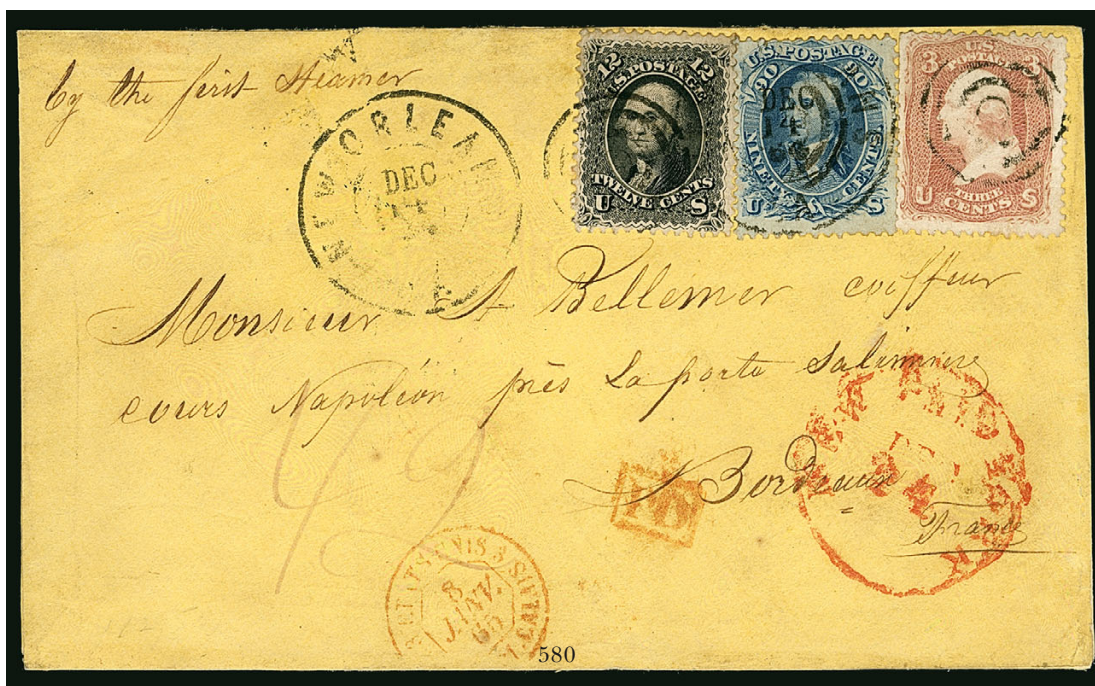 by the first Steamer
NEW ORLEANS
DEC
12 U.S. POSTAGE 12
TWELVE CENTS
U S
90 U.S. POSTAGE 90
DEC
14
NINETY CENTS
U S
3 U.S. 3
THREE
U CENTS S
Monsieur A Bellemer coiffeur
cours Napoléon près La porte Salinniere
Bordeaux
France
NEW PAID YORK
24
PD
ETATS UNIS 3 SV. CALAIS
8
JANV.
580